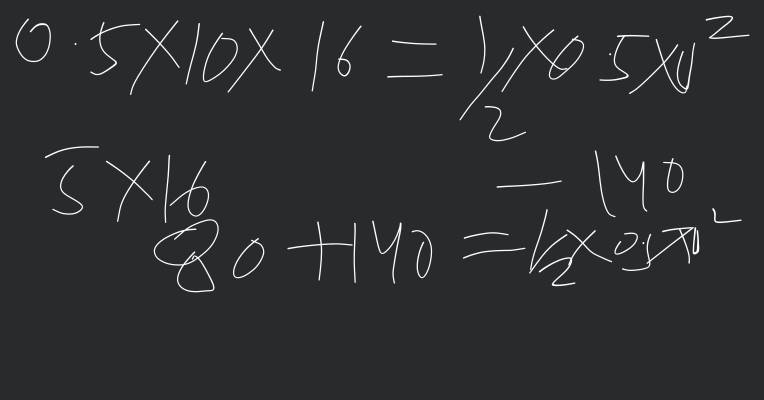 0.5×10×16 = 1/2×0.5×v²
5×16 - 140
80 + 140 = 1/2×0.5×v²